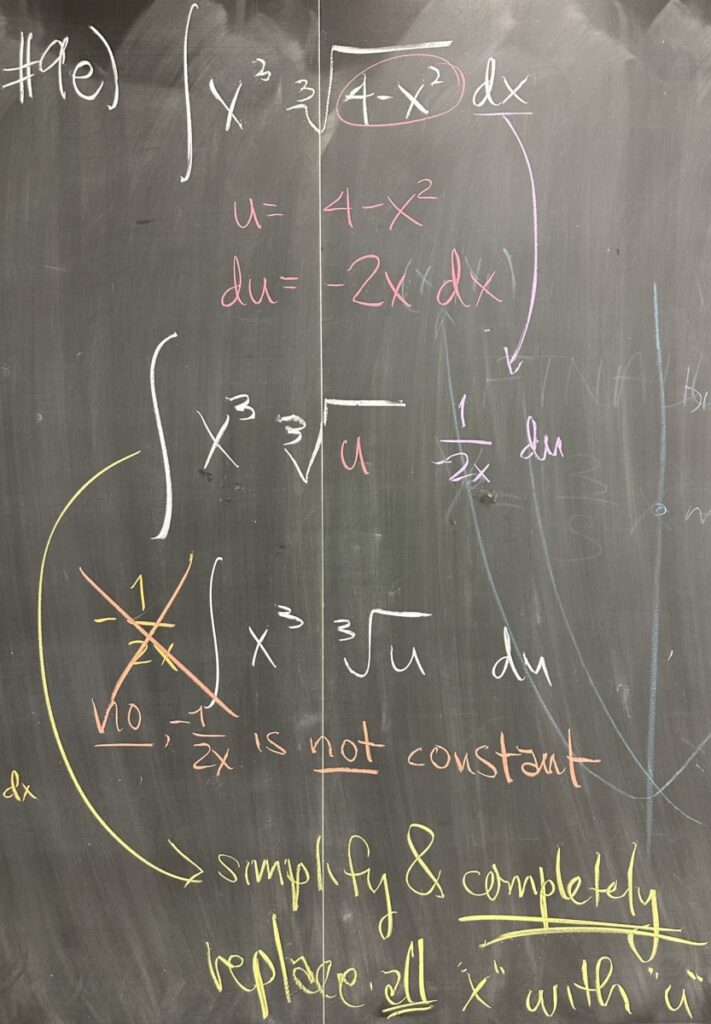 #9e) ∫ x³ ∛(4-x²) dx
u= 4-x²
du= -2x dx
∫ x³ ∛u 1/-2x du
-1/2x ∫ x³ ∛u du
no, -1/2x is not constant
dx
simplify & completely
replace all "x" with "u"